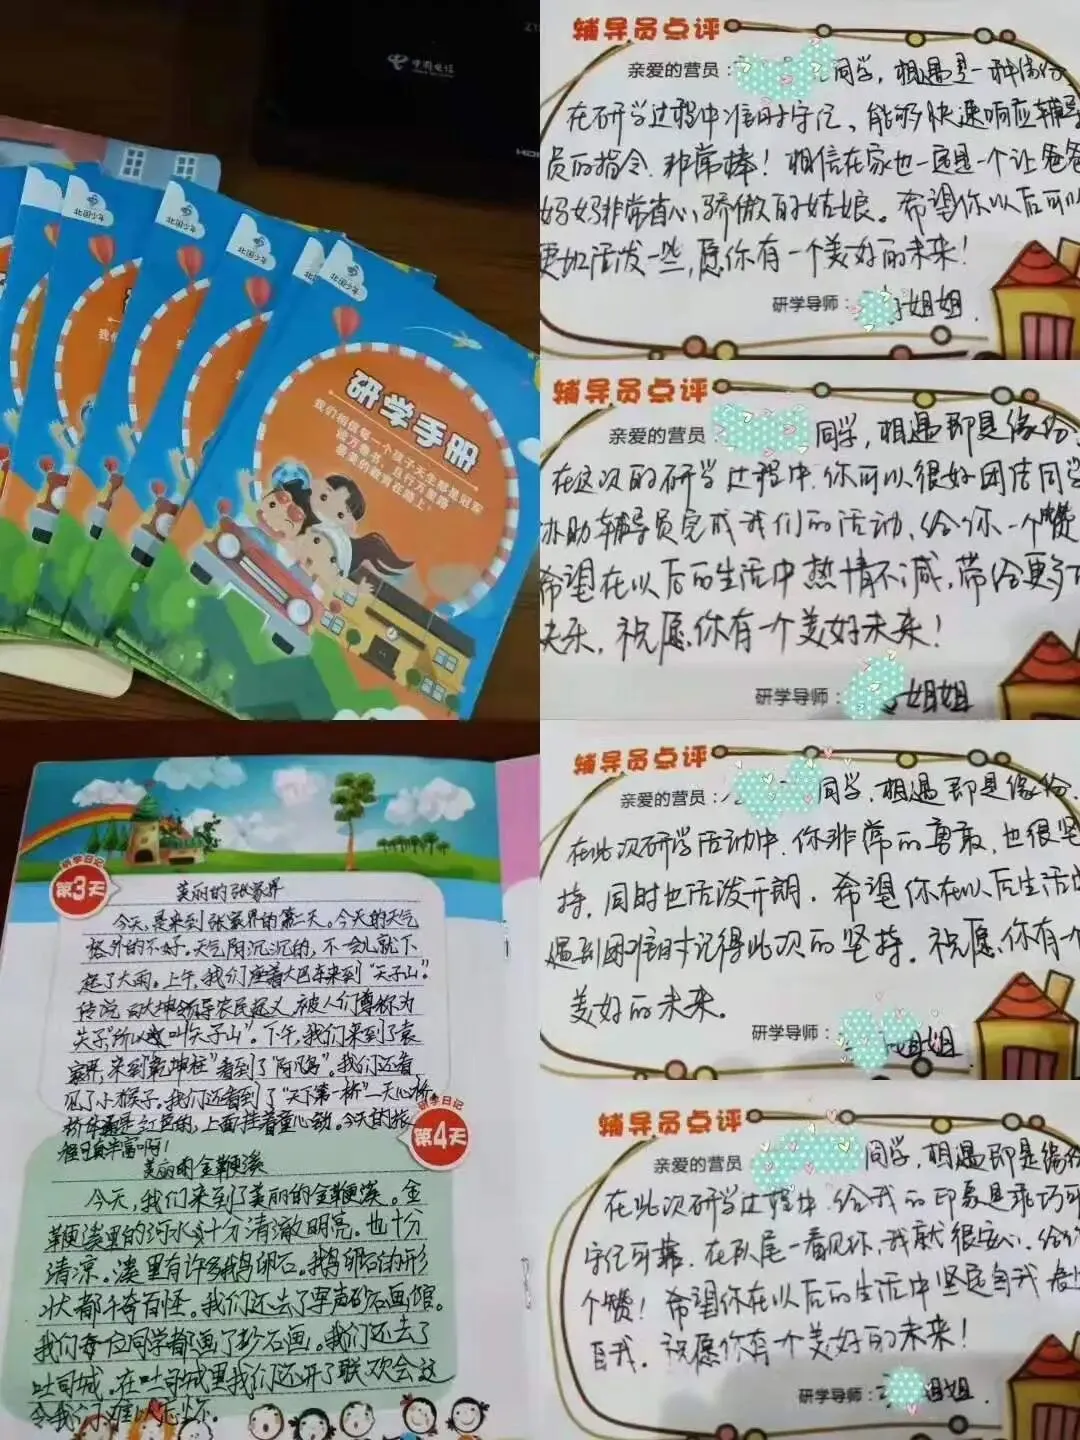 中国电信
北国少年
北国少年
北国少年
北国少年
北国少年
研学手册
我们相信每一个孩子天生都是冠军
读万卷书，且行万里路
最美的教育在路上！
辅导员点评
亲爱的营员：
同学，相遇是一种缘份
在研学过程中准时守纪、能够快速响应辅导
员的指令.非常棒！相信在家也一定是一个让爸爸
妈妈非常省心，骄傲的姑娘。希望你以后可以
更加活泼一些，愿你有一个美好的未来！
研学导师：
姐姐.
辅导员点评
亲爱的营员：
同学，相遇即是缘份.
在这次的研学过程中.你可以很好团结同学
协助辅导员完成我们的活动、给你一个赞
希望在以后的生活中热情不减，带给更多
快乐，祝愿你有一个美好未来！
研学导师：
姐姐
辅导员点评
亲爱的营员：
同学，相遇即是缘份.
在此次研学活动中.你非常的勇敢，也很坚
持，同时也活泼开朗．希望你在以后生活中
遇到困难时记得此次的坚持．祝愿你有一个
美好的未来.
研学导师：
姐姐.
辅导员点评
亲爱的营员
同学，相遇即是缘份
在此次研学过程中.给我的印象是乖巧可
守纪可靠．在队尾一看见你，我就很安心．给你
个赞！希望你在以后的生活中坚定自我
自我．祝愿你有一个美好的未来！
研学导师：
姐姐.
研学日记
第3天
美丽的张家界
今天，是来到张家界的第二天。今天的天气
格外的不好。天气阴沉沉的，不一会儿就下
起了大雨。上午，我们座着大巴车来到“天子山”。
传说向大坤领导农民起义，被人们尊称为
天子”所以叫“天子山”。下午，我们来到了袁
家界，来到“乾坤柱”看到了
我们还看
见了小猴子。我们还看到了“天下第一桥”—天心桥
桥体是红色的，上面挂着童心锁。今天的旅
程真丰富啊！
研学日记
第4天
美丽的金鞭溪
今天，我们来到了美丽的金鞭溪。金
鞭溪里的河水十分清澈明亮。也十分
清凉。溪里有许多鹅卵石。鹅卵石的形
状都千奇百怪。我们还去了军声砂石画馆。
我们每位同学都画了彩石画。我们还去了
吐司城。在吐司城里我们还开了联欢会这
令我们难以忘怀。